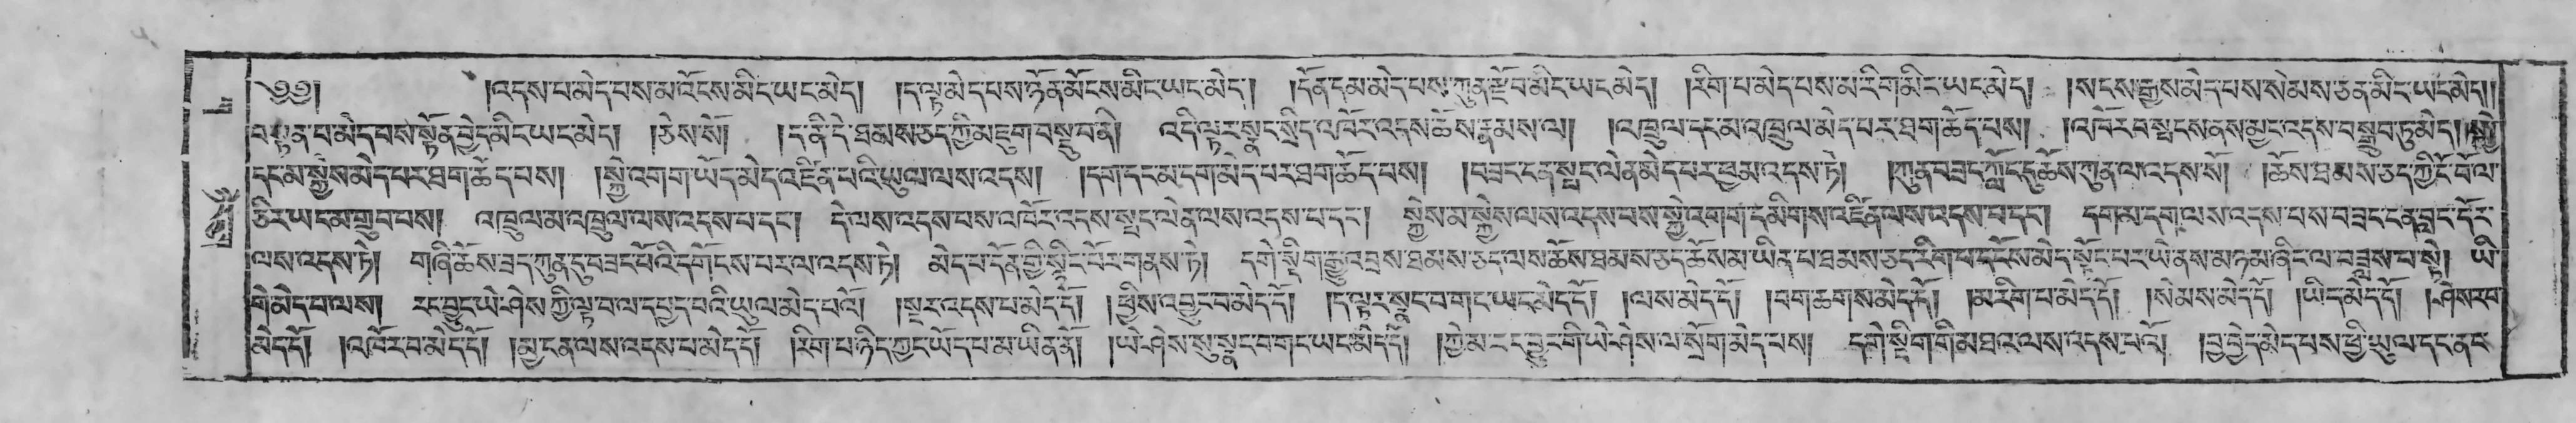 ༄༅། །འདས་པ་མེད་པས་མ་འོངས་མིང་ཡང་མེད། །ད་ལྟ་མེད་པས་ཉོན་མོངས་མིང་ཡང་མེད། །དོན་དམ་མེད་པས་ཀུན་རྫོབ་མིང་ཡང་མེད། །རིག་པ་མེད་པས་མ་རིག་མིང་ཡང་མེད། །སངས་རྒྱས་མེད་པས་སེམས་ཅན་མིང་ཡང་མེད།།
བསྟན་པ་མེད་པས་སྟོན་བྱེད་མིང་ཡང་མེད། །ཅེས་སོ། །ད་ནི་དེ་ཐམས་ཅད་ཀྱི་མཇུག་བསྡུ་བ་ནི། འདི་ལྟར་སྣང་སྲིད་འཁོར་འདས་ཆོས་རྣམས་ལ། །འཁྲུལ་དང་མ་འཁྲུལ་མེད་པར་ཐག་ཆོད་པས། །འཁོར་བ་སྤངས་ནས་མྱང་འདས་བསྒྲུབ་ཏུ་མེད། །སྐྱེ
དང་མ་སྐྱེས་མེད་པར་ཐག་ཆོད་པས། །སྐྱེ་འགག་ཡོད་མེད་འཛིན་པའི་ཡུལ་ལས་འདས། །དག་དང་མ་དག་མེད་པར་ཐག་ཆོད་པས། །བཟང་ངན་སྤང་ལེན་མེད་པར་ཕྱམ་འདས་ཏེ། །ཀུན་བཟང་ཀློང་དུ་ཆོས་ཀུན་ལ་འདས་སོ། །ཆོས་ཐམས་ཅད་ཀྱི་ངོ་བོ་ལ་
ཅིར་ཡང་མ་གྲུབ་པས། འཁྲུལ་མ་འཁྲུལ་ལས་འདས་པ་དང་། དེ་ལས་འདས་པས་འཁོར་འདས་སྤང་ལེན་ལས་འདས་པ་དང་། སྐྱེས་མ་སྐྱེས་ལས་འདས་པས་སྐྱེ་འགག་དམིགས་འཛིན་ལས་འདས་པ་དང་། དག་མ་དག་ལས་འདས་པས་བཟང་ངན་བླང་དོར་
ལས་འདས་ཏེ། གཞི་ཆོས་ཟད་ཀུན་ཏུ་བཟང་པོའི་དགོངས་པར་ལ་འདས་ཏེ། མེད་པ་དོན་གྱི་སྙིང་པོར་གནས་ཏེ། དགེ་སྡིག་རྒྱུ་འབྲས་ཐམས་ཅད་ལས་ཆོས་ཐམས་ཅད་ཆོས་མ་ཡིན་པ་ཐམས་ཅད་རིག་པ་དངོས་མེད་སྟོང་པར་ཡེ་ནས་མཉམ་ཞིང་ལ་བཟླས་པ་སྟེ། ཡི་
གེ་མེད་པ་ལས། རང་བྱུང་ཡེ་ཤེས་ཀྱི་ལྟ་བ་ལ་དཔྱད་པའི་ཡུལ་མེད་པའོ། །སྔར་འདས་པ་མེད་དོ། །ཕྱིས་འབྱུང་བ་མེད་དོ། །ད་ལྟར་སྣང་བ་གང་ཡང་མེད་དོ། །ལས་མེད་དོ། །བག་ཆགས་མེད་དོ། །མ་རིག་པ་མེད་དོ། །སེམས་མེད་དོ། །ཡིད་མེད་དོ། །ཤེས་རབ་
མེད་དོ། །འཁོར་བ་མེད་དོ། །མྱ་ངན་ལས་འདས་པ་མེད་དོ། །རིག་པ་ཉིད་ཀྱང་ཡོད་པ་མ་ཡིན་ནོ། །ཡེ་ཤེས་སུ་སྣང་བ་གང་ཡང་མེད་དོ། །ཀྱེ་མ་རང་བྱུང་གི་ཡེ་ཤེས་ལ་སྲོག་མེད་པས། དགེ་སྡིག་གི་མཐའ་ལས་འདས་པའོ། །བྱ་བྱེད་མེད་པས་ཕྱི་ཡུལ་དང་ནང་